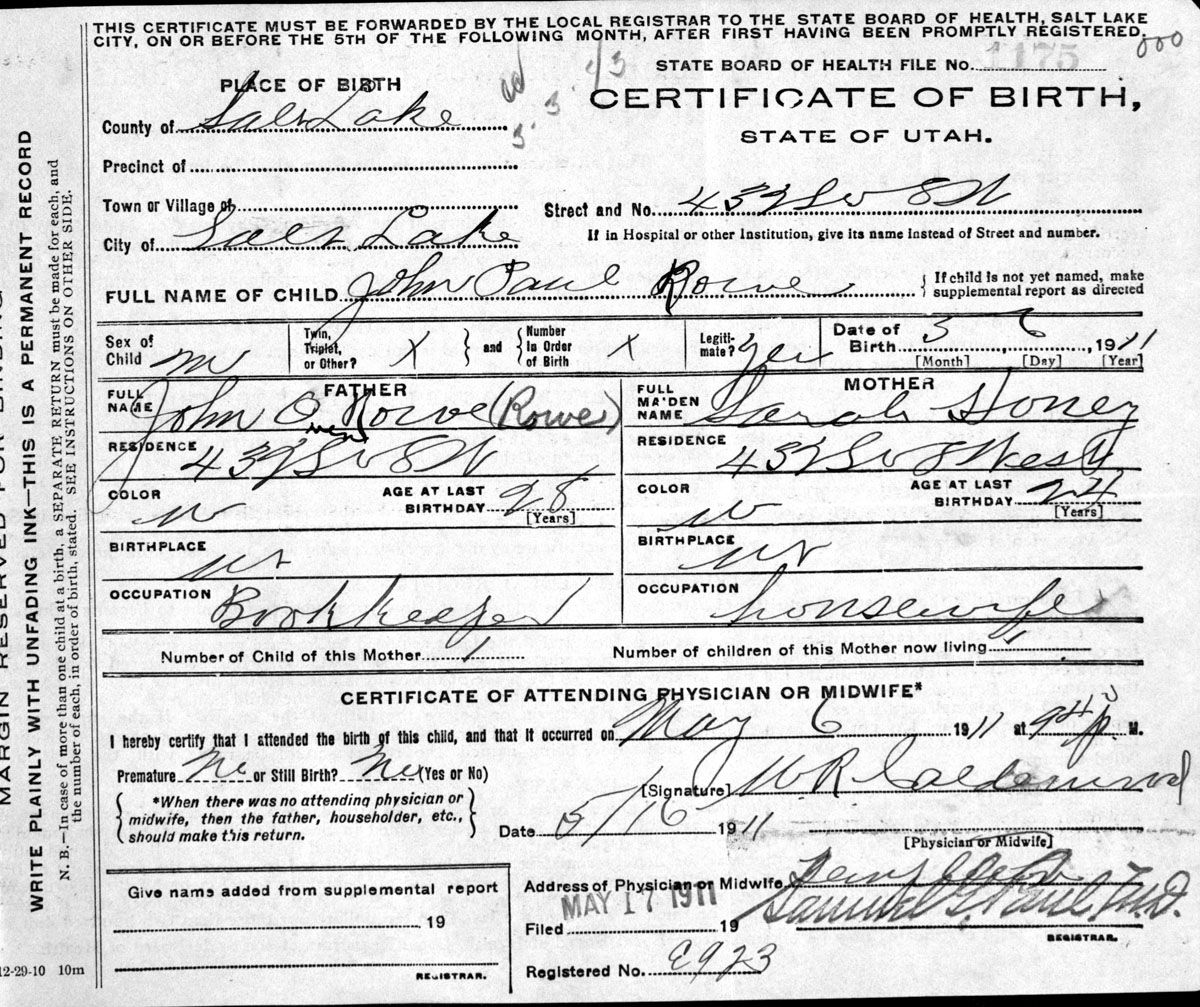 THIS CERTIFICATE MUST BE FORWARDED BY THE LOCAL REGISTRAR TO THE STATE BOARD OF HEALTH, SALT LAKE
CITY, ON OR BEFORE THE 5TH OF THE FOLLOWING MONTH, AFTER FIRST HAVING BEEN PROMPTLY REGISTERED.
000
STATE BOARD OF HEALTH FILE No. 1175
PLACE OF BIRTH
CERTIFICATE OF BIRTH,
STATE OF UTAH.
County of Salt Lake
Precinct of
Town or Village of
Street and No. 432 So 8 W
City of Salt Lake
If in Hospital or other Institution, give its name instead of Street and number.
FULL NAME OF CHILD John Paul Rowe
If child is not yet named, make
supplemental report as directed
Sex of Child m
Twin, Triplet, or Other? X and Number In Order of Birth X
Legitimate? yes
Date of Birth 5 6, 1911
[Month] [Day] [Year]
FATHER
FULL NAME John Owen Rowe (Rowe)
RESIDENCE 432 So 8 W
COLOR W
AGE AT LAST BIRTHDAY 28
[Years]
BIRTHPLACE Ut
OCCUPATION Bookkeeper
MOTHER
FULL MAIDEN NAME Sarah Stoney
RESIDENCE 432 So 8 West
COLOR W
AGE AT LAST BIRTHDAY 24
[Years]
BIRTHPLACE Ut
OCCUPATION housewife
Number of Child of this Mother 1
Number of children of this Mother now living 1
CERTIFICATE OF ATTENDING PHYSICIAN OR MIDWIFE*
I hereby certify that I attended the birth of this child, and that it occurred on May 6 1911 at P. M.
Premature No or Still Birth? No (Yes or No)
*When there was no attending physician or
midwife, then the father, householder, etc.,
should make this return.
[Signature] W R Calderwood
Date 5/16 1911
[Physician or Midwife]
Give name added from supplemental report
19
REGISTRAR.
Address of Physician or Midwife
Filed MAY 17 1911 19
Samuel G. Paul, M.D.
REGISTRAR.
Registered No. E923
12-29-10 10m
MARGIN RESERVED FOR BINDING.
WRITE PLAINLY WITH UNFADING INK—THIS IS A PERMANENT RECORD
N. B.—In case of more than one child at a birth, a SEPARATE RETURN must be made for each, and
the number of each, in order of birth, stated. SEE INSTRUCTIONS ON OTHER SIDE.